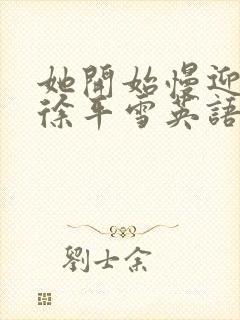 她開始慢迎
徐平雪英語
劉士余